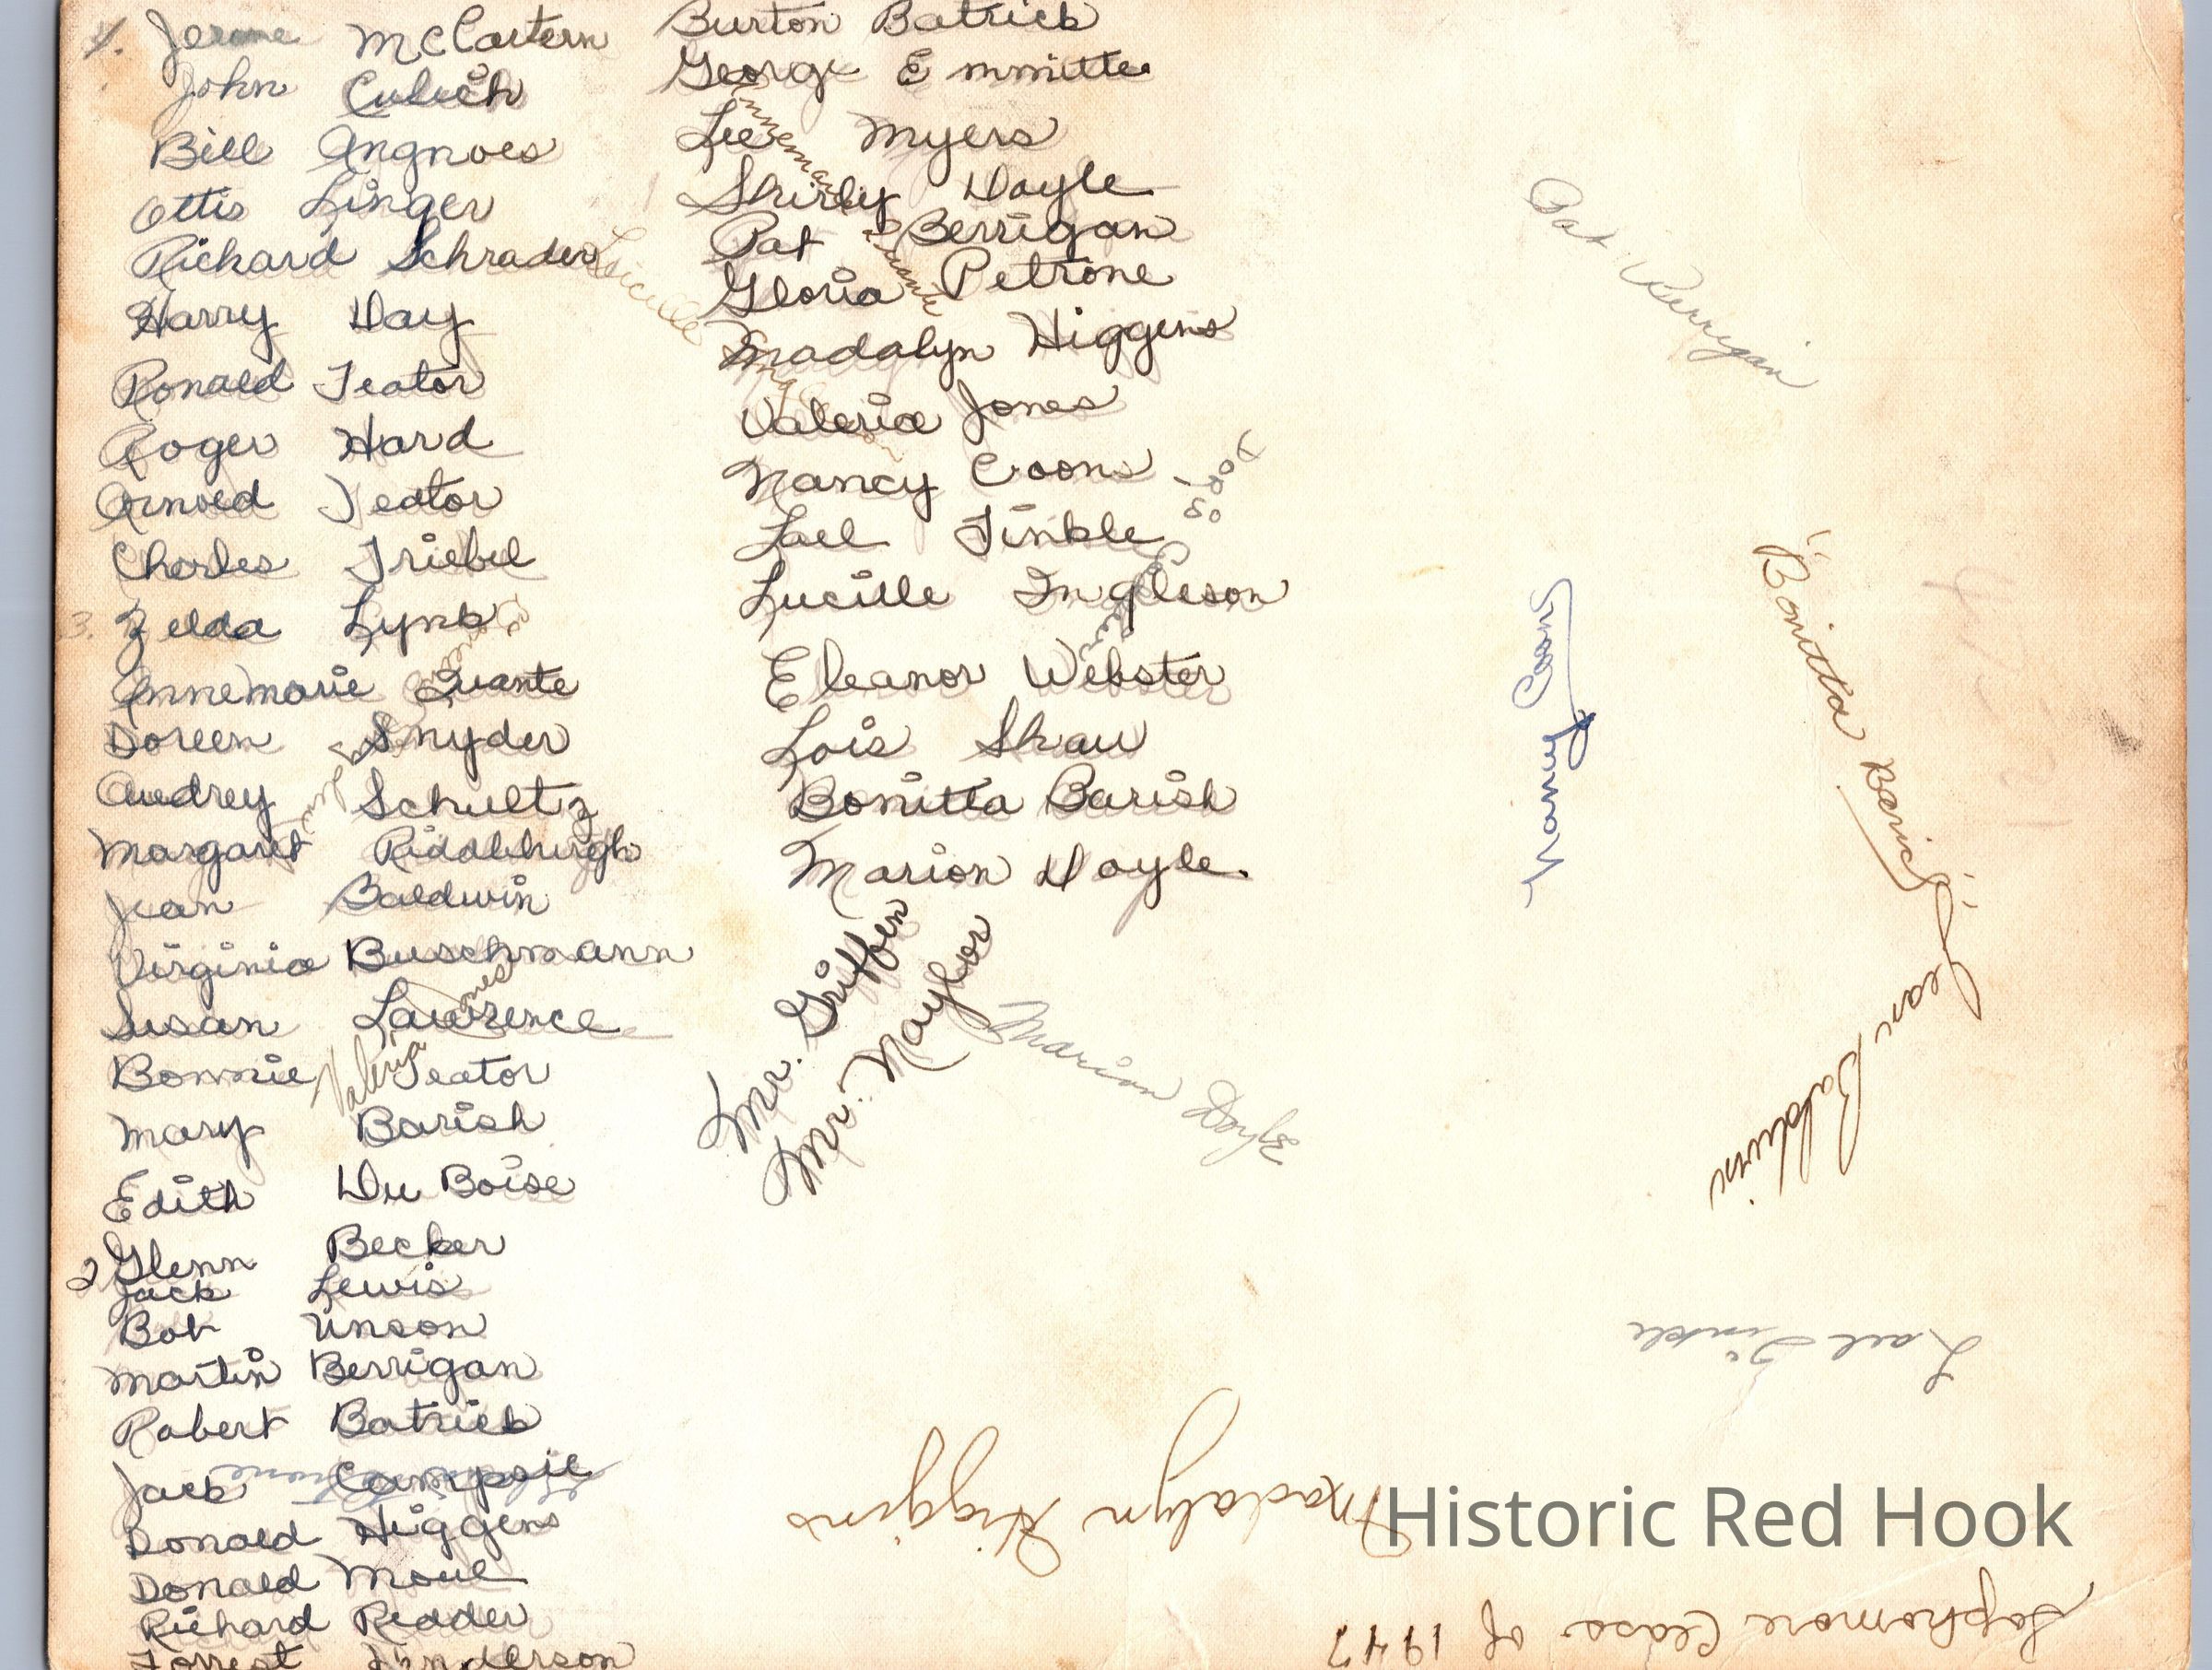 4. Jerome McCartern
John Culich
Bill Angnoes
Ottis Linger
Richard Schrader
Harry Day
Ronald Teator
Roger Hard
Arnold Teator
Charles Triebel
3. Zelda Lynk
Annemarie Quante
Doreen Snyder
Audrey Schultz
Margaret Riddleburgh
Jean Baldwin
Virginia Buschmann
Susan Lawrence
Bonnie Teator
Mary Barish
Edith Du Boise
2 Glenn Becker
Jack Lewis
Bob Unson
Martin Berrigan
Robert Batrick
Jack Campsie
Donald Higgens
Donald Moul
Richard Redder
Forrest Anderson
Burton Batrick
George Emmitte
Lee Myers
Shirly Doyle
Pat Berrigan
Gloria Petrone
Madalyn Higgens
Valeria Jones
Nancy Coons
Lael Tinkle
Lucille Ingleson
Eleanor Webster
Lois Shaw
Bonitta Barish
Marion Doyle.
Mr. Griffen
Mr. Naylor
Annemarie Quante
Lucille
Valeria Jones
Marion Doyle
Pat Berrigan
Nancy Coons
"Bonitta Barish"
Jean Baldwin
Lael Tinkle
Madalyn Higgins
Sophomore Class of 1947
Historic Red Hook